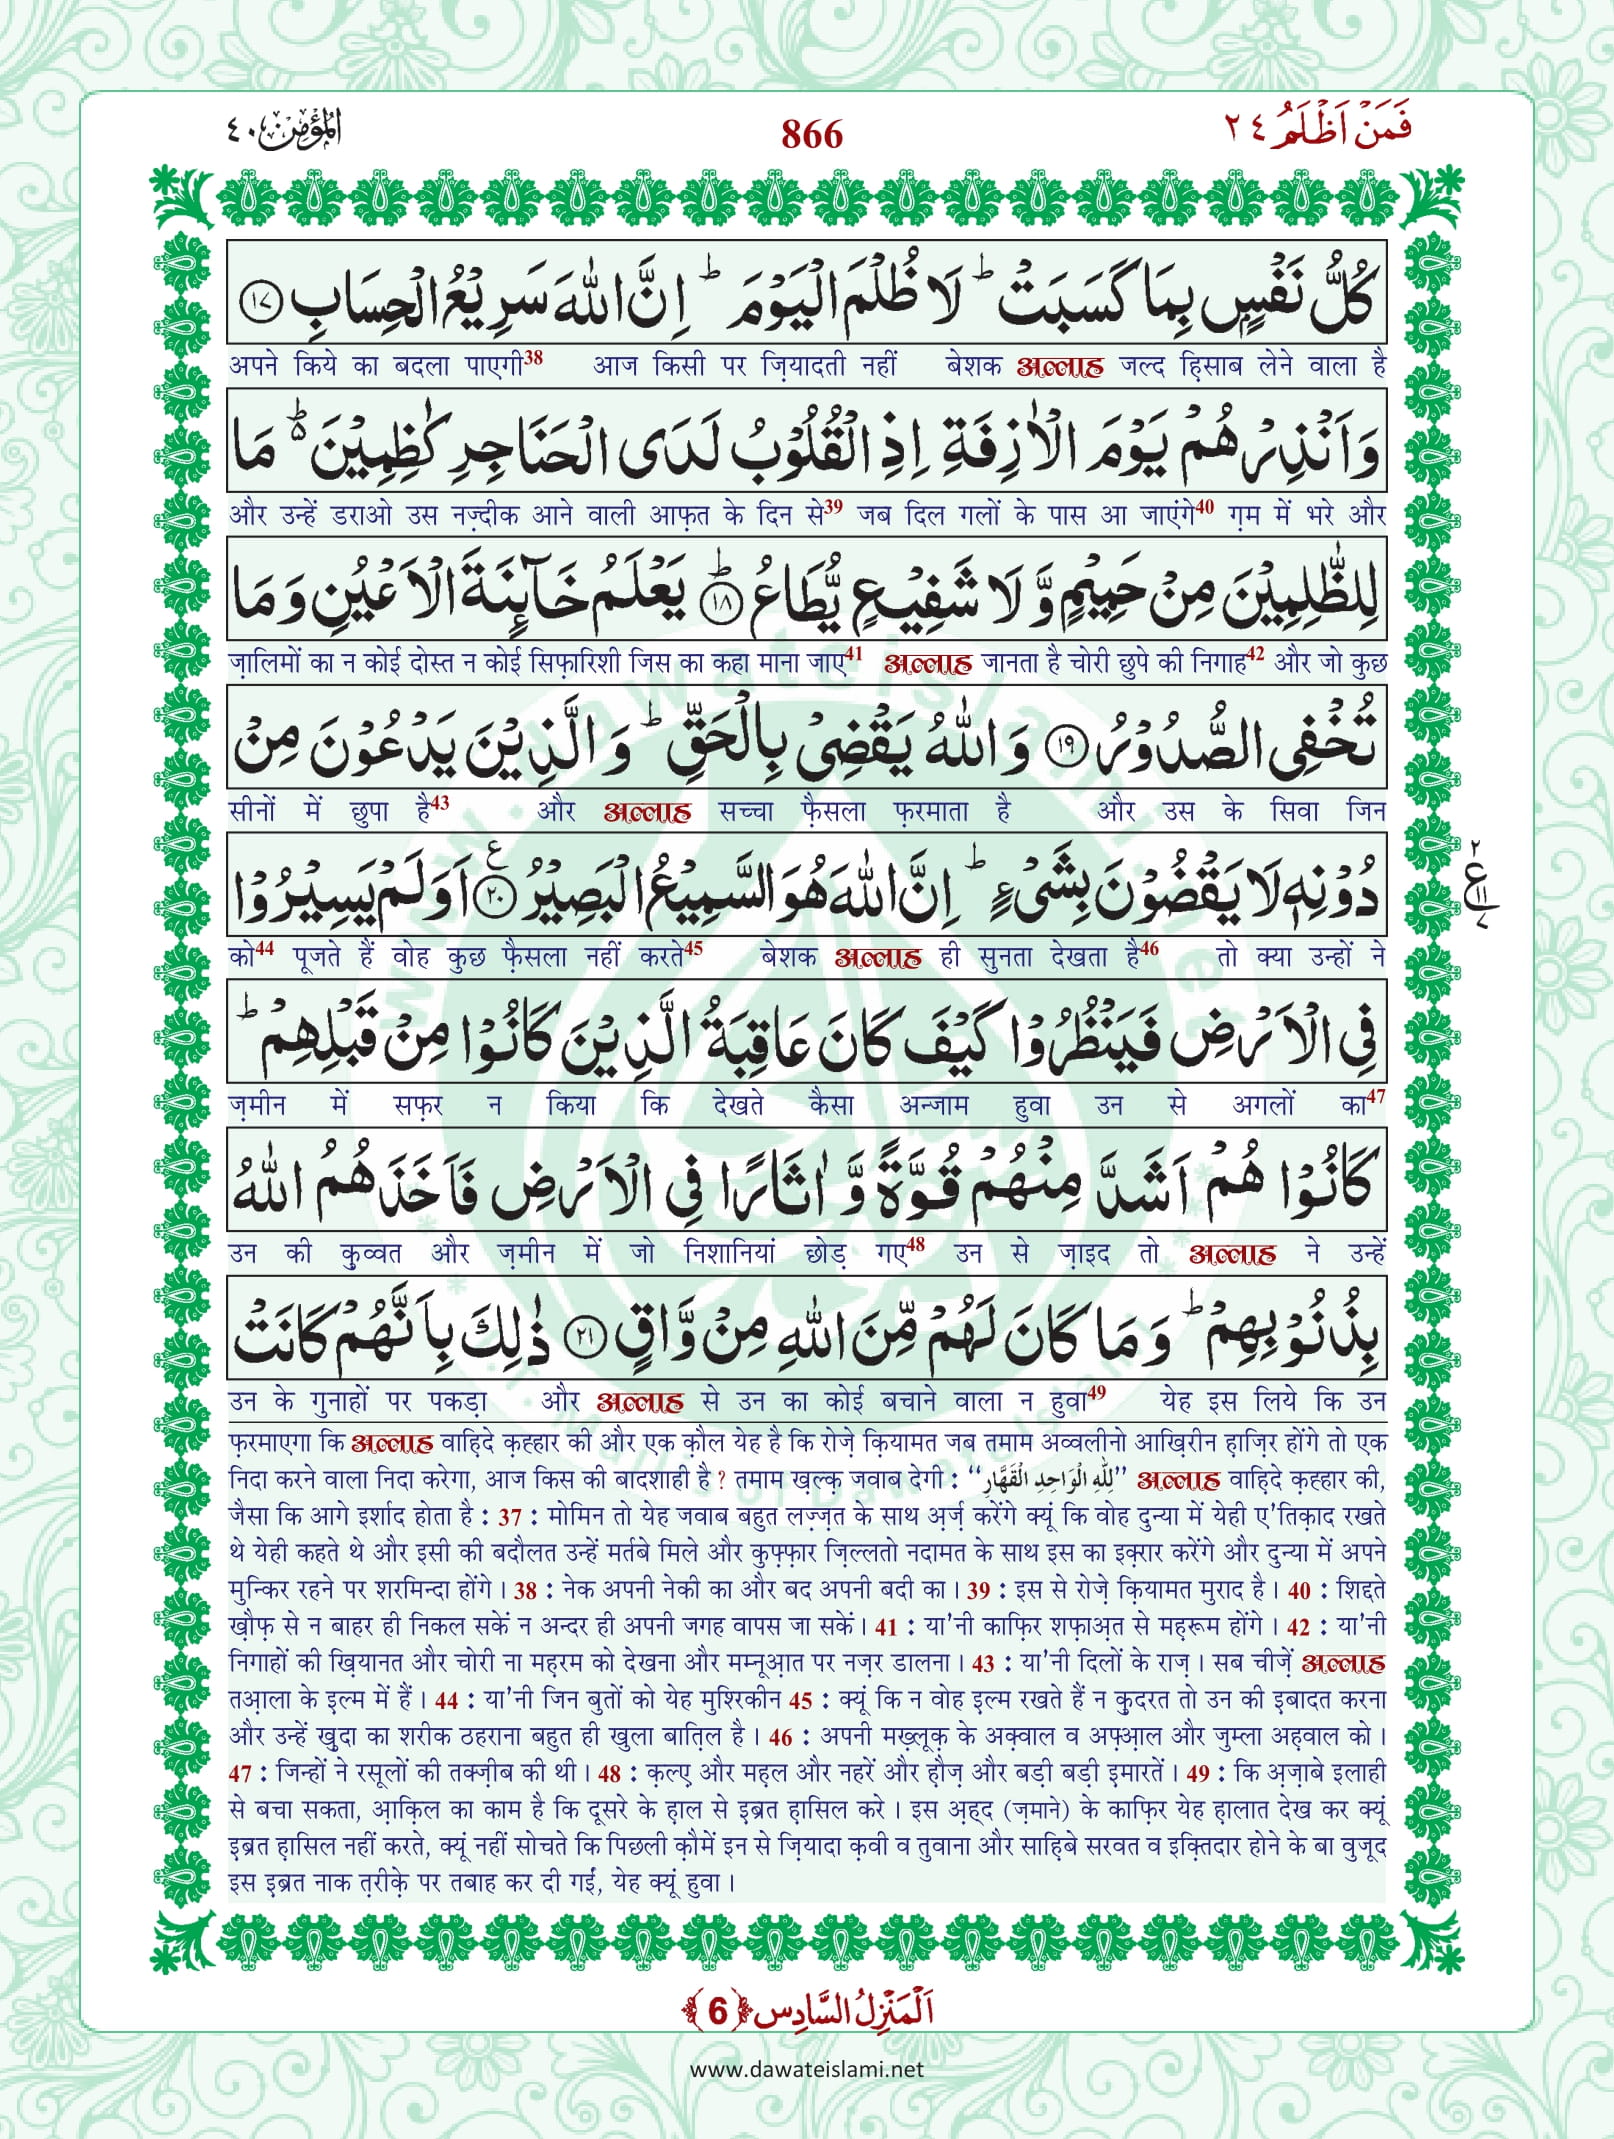 فَمَنْ اَظْلَمُ ٢٤
866
الْمُؤْمِن ٤٠
كُلُّ نَفْسٍۭ بِمَا كَسَبَتْ ؕ لَا ظُلْمَ الْیَوْمَ ؕ اِنَّ اللّٰهَ سَرِیْعُ الْحِسَابِ ۝۱۷
अपने किये का बदला पाएगी38 आज किसी पर ज़ियादती नहीं बेशक अल्लाह जल्द हि़साब लेने वाला है
وَ اَنْذِرْهُمْ یَوْمَ الْاٰزِفَةِ اِذِ الْقُلُوْبُ لَدَی الْحَنَاجِرِ كٰظِمِیْنَ ؕ۬ مَا
और उन्हें डराओ उस नज़्दीक आने वाली आफ़त के दिन से39 जब दिल गलों के पास आ जाएंगे40 ग़म में भरे और
لِلظّٰلِمِیْنَ مِنْ حَمِیْمٍ وَّ لَا شَفِیْعٍ یُّطَاعُ ؕ۝۱۸ یَعْلَمُ خَآىٕنَةَ الْاَعْیُنِ وَ مَا
ज़ालिमों का न कोई दोस्त न कोई सिफ़ारिशी जिस का कहा माना जाए41 अल्लाह जानता है चोरी छुपे की निगाह42 और जो कुछ
تُخْفِی الصُّدُوْرُ ۝۱۹ وَ اللّٰهُ یَقْضِیْ بِالْحَقِّ ؕ وَ الَّذِیْنَ یَدْعُوْنَ مِنْ
सीनों में छुपा है43 और अल्लाह सच्चा फ़ैसला फ़रमाता है और उस के सिवा जिन
دُوْنِهٖ لَا یَقْضُوْنَ بِشَیْءٍ ؕ اِنَّ اللّٰهَ هُوَ السَّمِیْعُ الْبَصِیْرُ ۝۲۰ ع اَوَ لَمْ یَسِیْرُوْا
٢ ع ١١ ٧
को44 पूजते हैं वोह कुछ फ़ैसला नहीं करते45 बेशक अल्लाह ही सुनता देखता है46 तो क्या उन्हों ने
فِی الْاَرْضِ فَیَنْظُرُوْا كَیْفَ كَانَ عَاقِبَةُ الَّذِیْنَ كَانُوْا مِنْ قَبْلِهِمْ ؕ
ज़मीन में सफ़र न किया कि देखते कैसा अन्जाम हुवा उन से अगलों का47
كَانُوْا هُمْ اَشَدَّ مِنْهُمْ قُوَّةً وَّ اٰثَارًا فِی الْاَرْضِ فَاَخَذَهُمُ اللّٰهُ
उन की कु़व्वत और ज़मीन में जो निशानियां छोड़ गए48 उन से ज़ाइद तो अल्लाह ने उन्हें
بِذُنُوْبِهِمْ ؕ وَ مَا كَانَ لَهُمْ مِّنَ اللّٰهِ مِنْ وَّاقٍ ۝۲۱ ذٰلِكَ بِاَنَّهُمْ كَانَتْ
उन के गुनाहों पर पकड़ा और अल्लाह से उन का कोई बचाने वाला न हुवा49 येह इस लिये कि उन
फ़रमाएगा कि अल्लाह वाहि़दे क़ह्हार की और एक क़ौल येह है कि रोज़े क़ियामत जब तमाम अव्वलीनो आख़िरीन हाज़िर होंगे तो एक
निदा करने वाला निदा करेगा, आज किस की बादशाही है ? तमाम ख़ल्क़ जवाब देगी : ‘‘لِلّٰهِ الْوَاحِدِ الْقَهَّارِ’’ अल्लाह वाहि़दे क़ह्हार की,
जैसा कि आगे इर्शाद होता है : 37 : मोमिन तो येह जवाब बहुत लज़्ज़त के साथ अ़र्ज़ करेंगे क्यूं कि वोह दुन्या में येही ए'तिक़ाद रखते
थे येही कहते थे और इसी की बदौलत उन्हें मर्तबे मिले और कुफ़्फ़ार ज़िल्लतो नदामत के साथ इस का इक़्रार करेंगे और दुन्या में अपने
मुन्किर रहने पर शरमिन्दा होंगे । 38 : नेक अपनी नेकी का और बद अपनी बदी का । 39 : इस से रोज़े क़ियामत मुराद है । 40 : शिद्दते
ख़ौफ़ से न बाहर ही निकल सकें न अन्दर ही अपनी जगह वापस जा सकें । 41 : या'नी काफ़िर शफ़ाअ़त से मह़रूम होंगे । 42 : या'नी
निगाहों की ख़ियानत और चोरी ना मह़रम को देखना और मम्नूआ़त पर नज़र डालना । 43 : या'नी दिलों के राज़ । सब चीज़ें अल्लाह
तआ़ला के इल्म में हैं । 44 : या'नी जिन बुतों को येह मुश्रिकीन 45 : क्यूं कि न वोह इल्म रखते हैं न कु़दरत तो उन की इबादत करना
और उन्हें खु़दा का शरीक ठहराना बहुत ही खुला बातिल है । 46 : अपनी मख़्लूक़ के अक़्वाल व अफ़्आ़ल और जुम्ला अह़वाल को ।
47 : जिन्हों ने रसूलों की तक्ज़ीब की थी । 48 : क़ल्ए और मह़ल और नहरें और ह़ौज़ और बड़ी बड़ी इमारतें । 49 : कि अ़ज़ाबे इलाही
से बचा सकता, आ़क़िल का काम है कि दूसरे के ह़ाल से इ़ब्रत ह़ासिल करे । इस अ़ह्द (ज़माने) के काफ़िर येह ह़ालात देख कर क्यूं
इ़ब्रत ह़ासिल नहीं करते, क्यूं नहीं सोचते कि पिछली क़ौमें इन से ज़ियादा क़वी व तुवाना और साहि़बे सरवत व इक़्तिदार होने के बा वुजूद
इस इ़ब्रत नाक त़रीक़े पर तबाह कर दी गईं, येह क्यूं हुवा ।
اَلْمَنْزِلُ السَّادِس ﴿6﴾
www.dawateislami.net